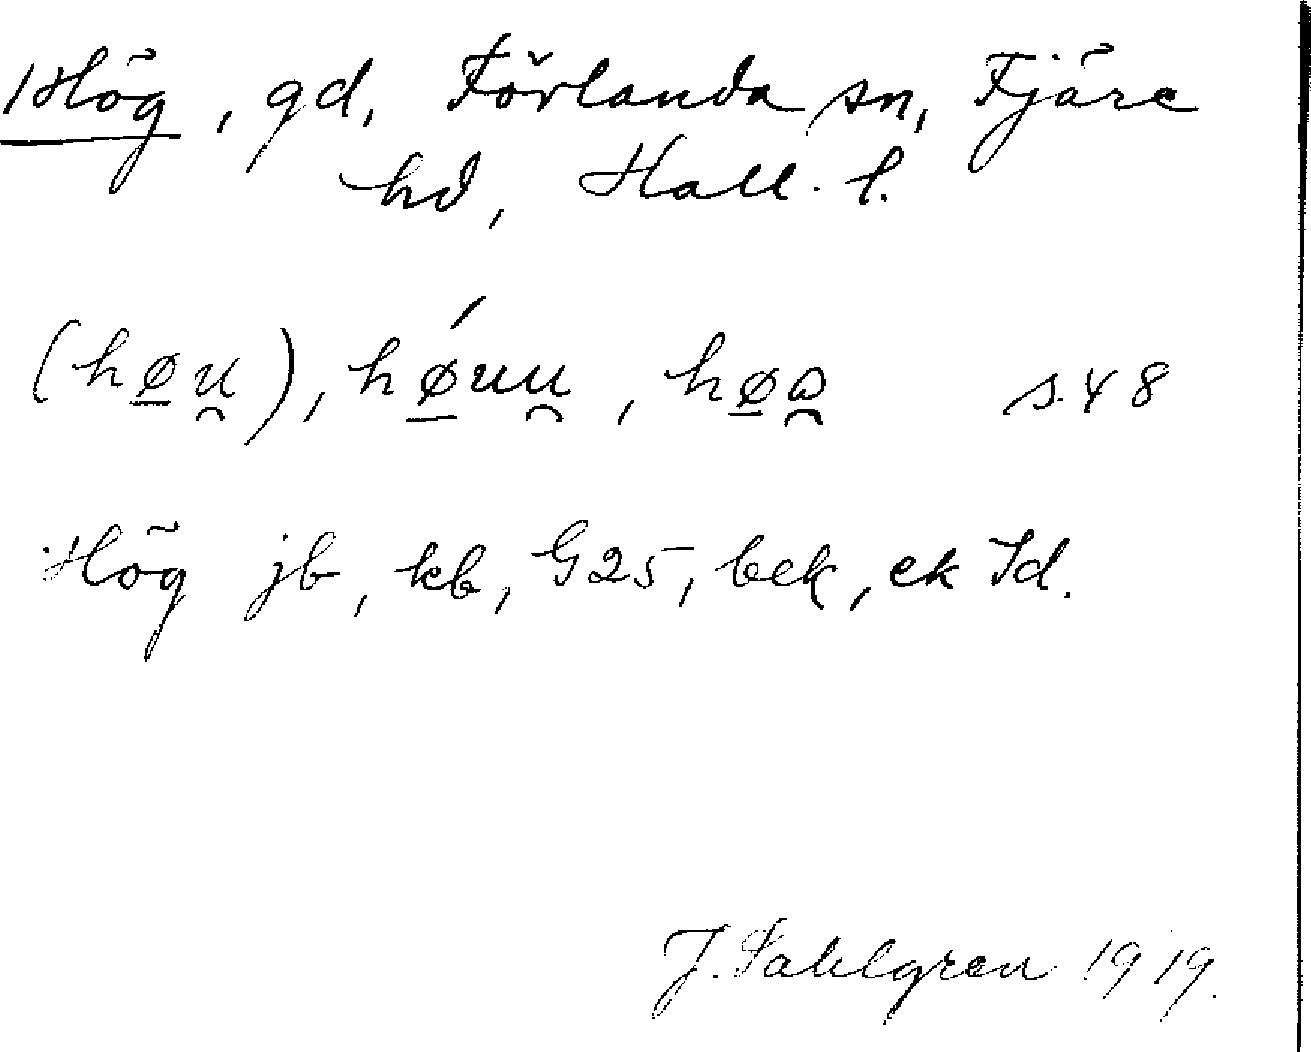 Hög, gd, Förlanda sn, Fjäre
hd, Hall. l.
(hø̲u̯), hǿ̲uu̯, hø̲ s. 48
Hög jb, kb, G25, bek, ek Id.
J. Sahlgren 1919.